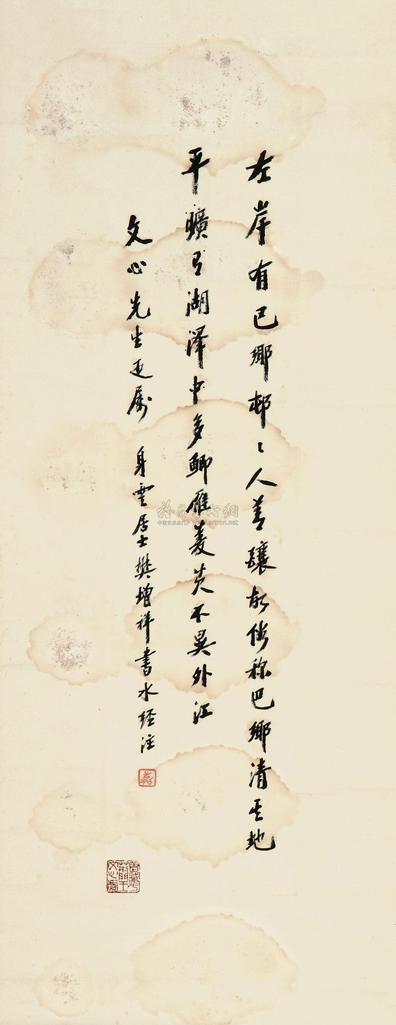 左岸有巴鄉邨〻人善釀故俗稱巴鄉清其地
平曠有湖澤中多鯽雁菱芡不異外江
文心先生正属 身雲居士樊增祥書水經注